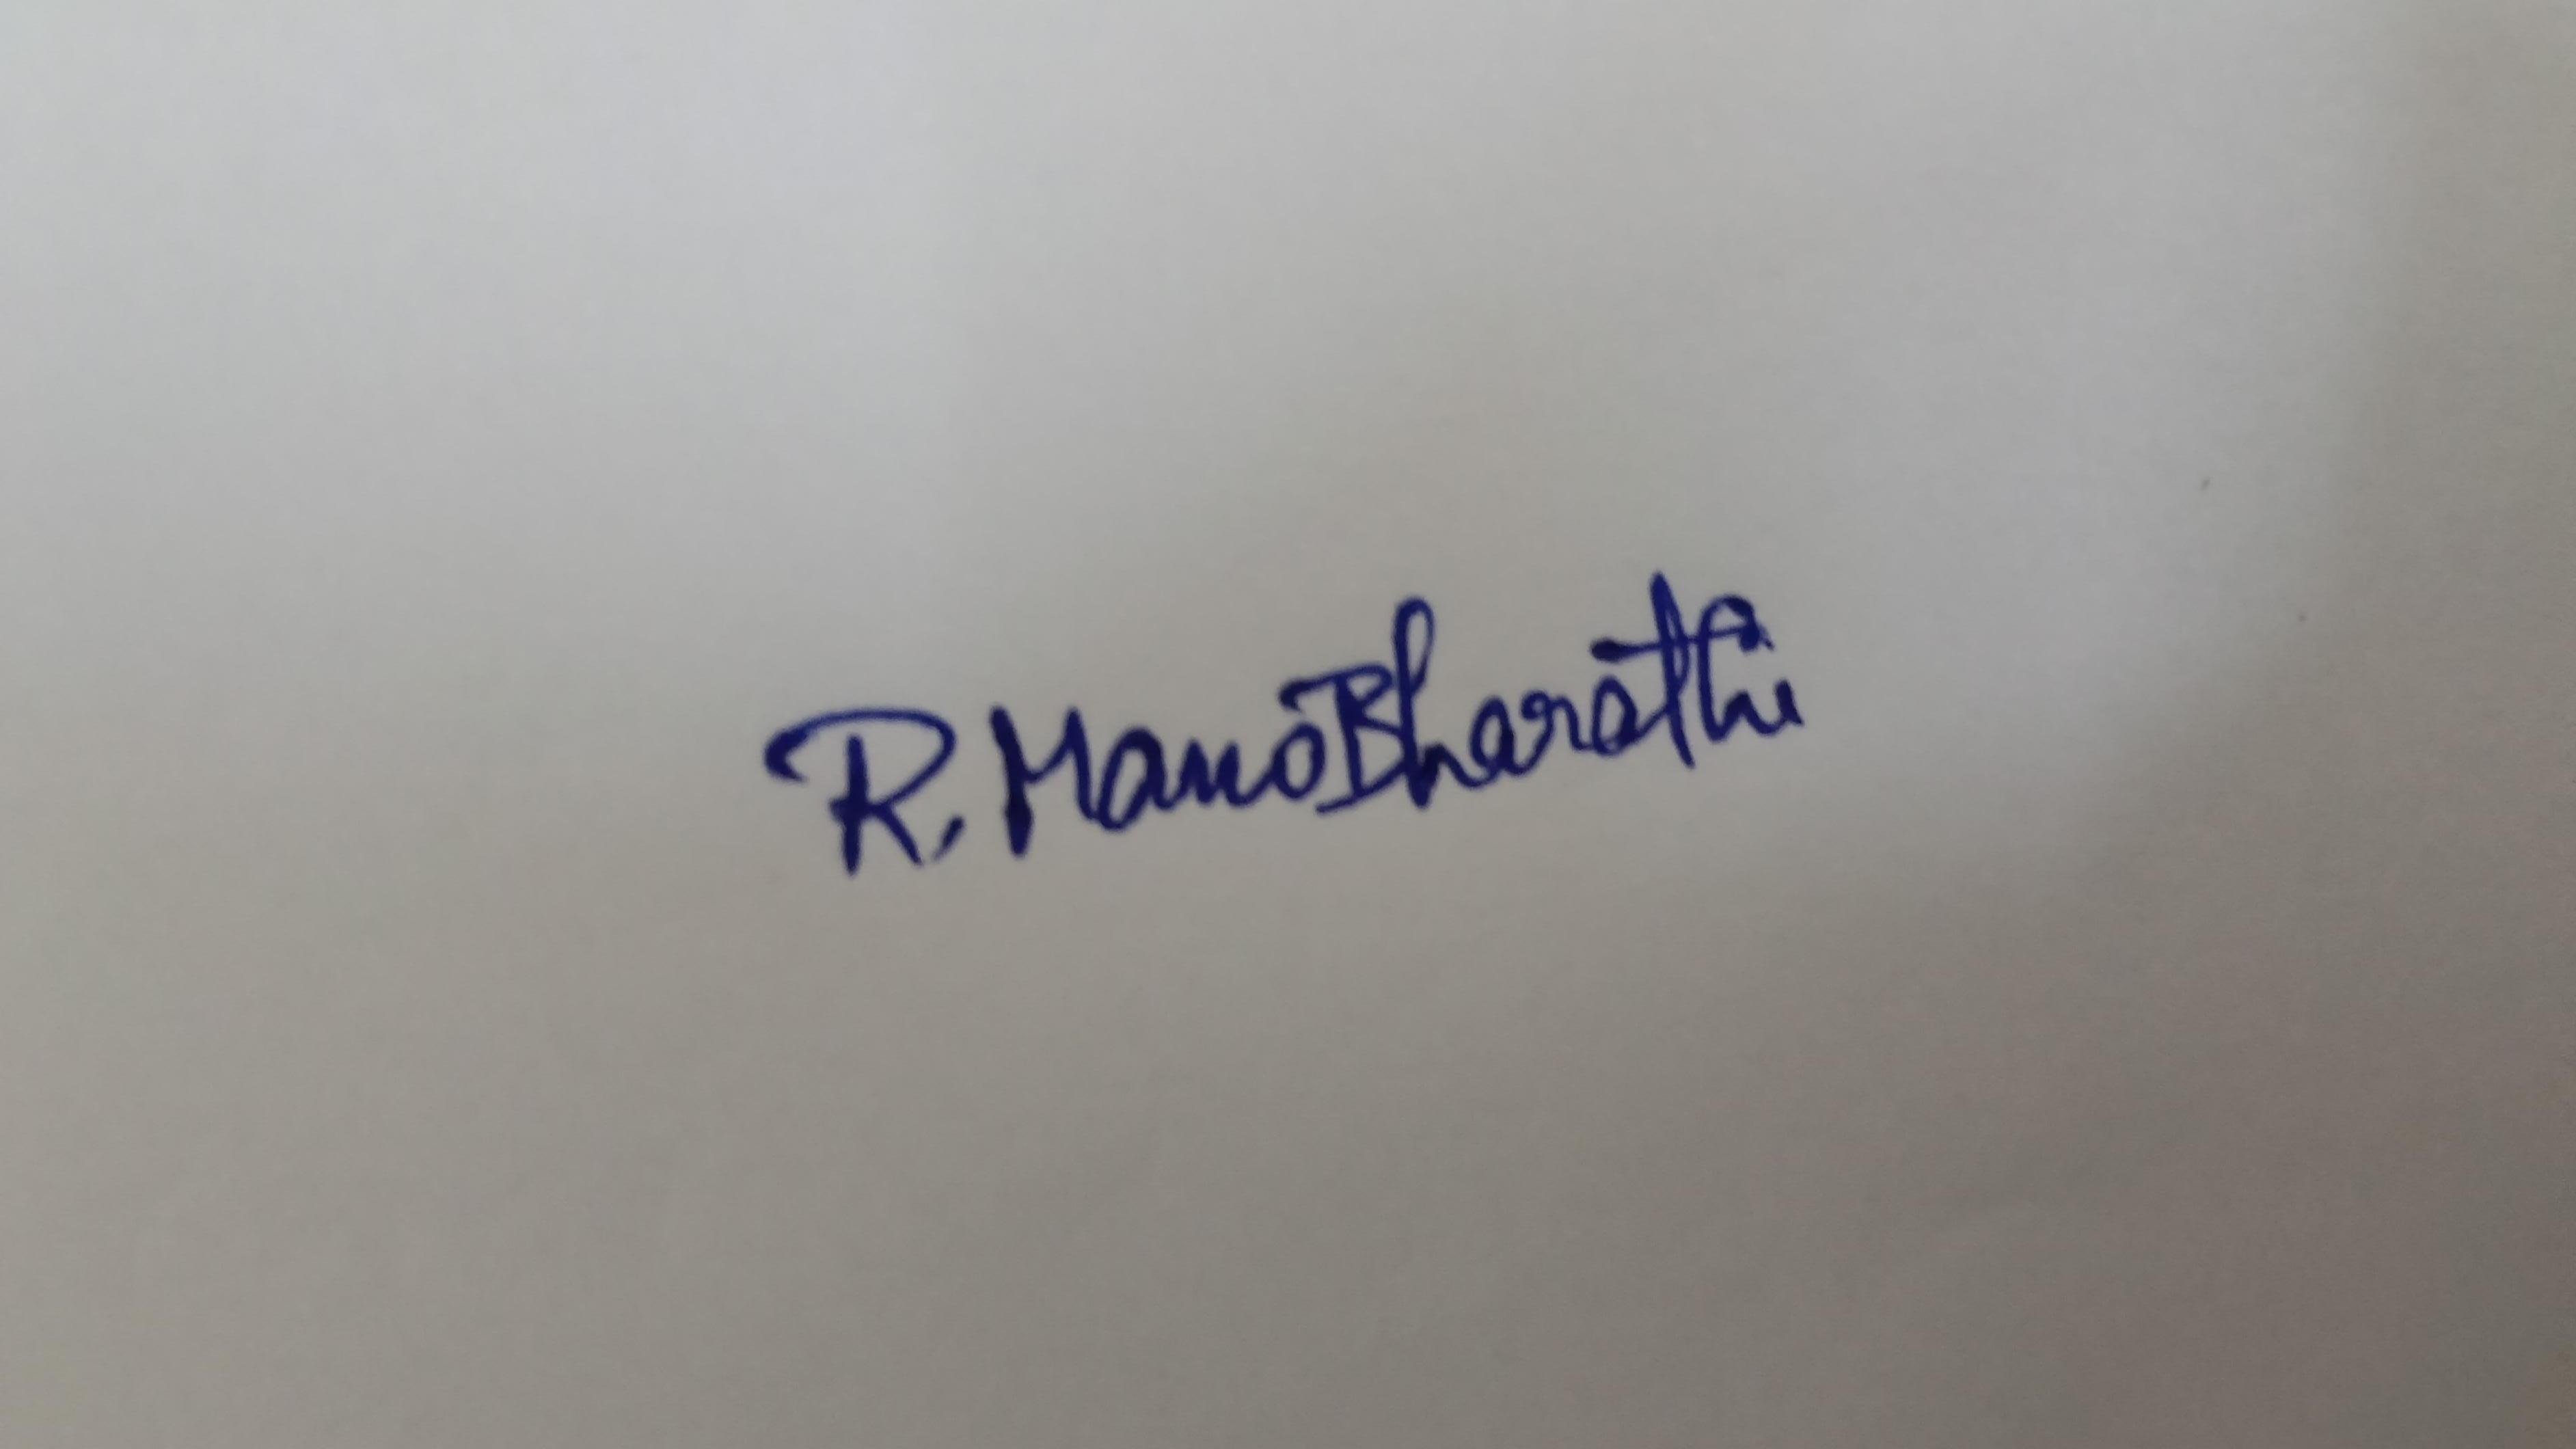 R. ManoBharathi